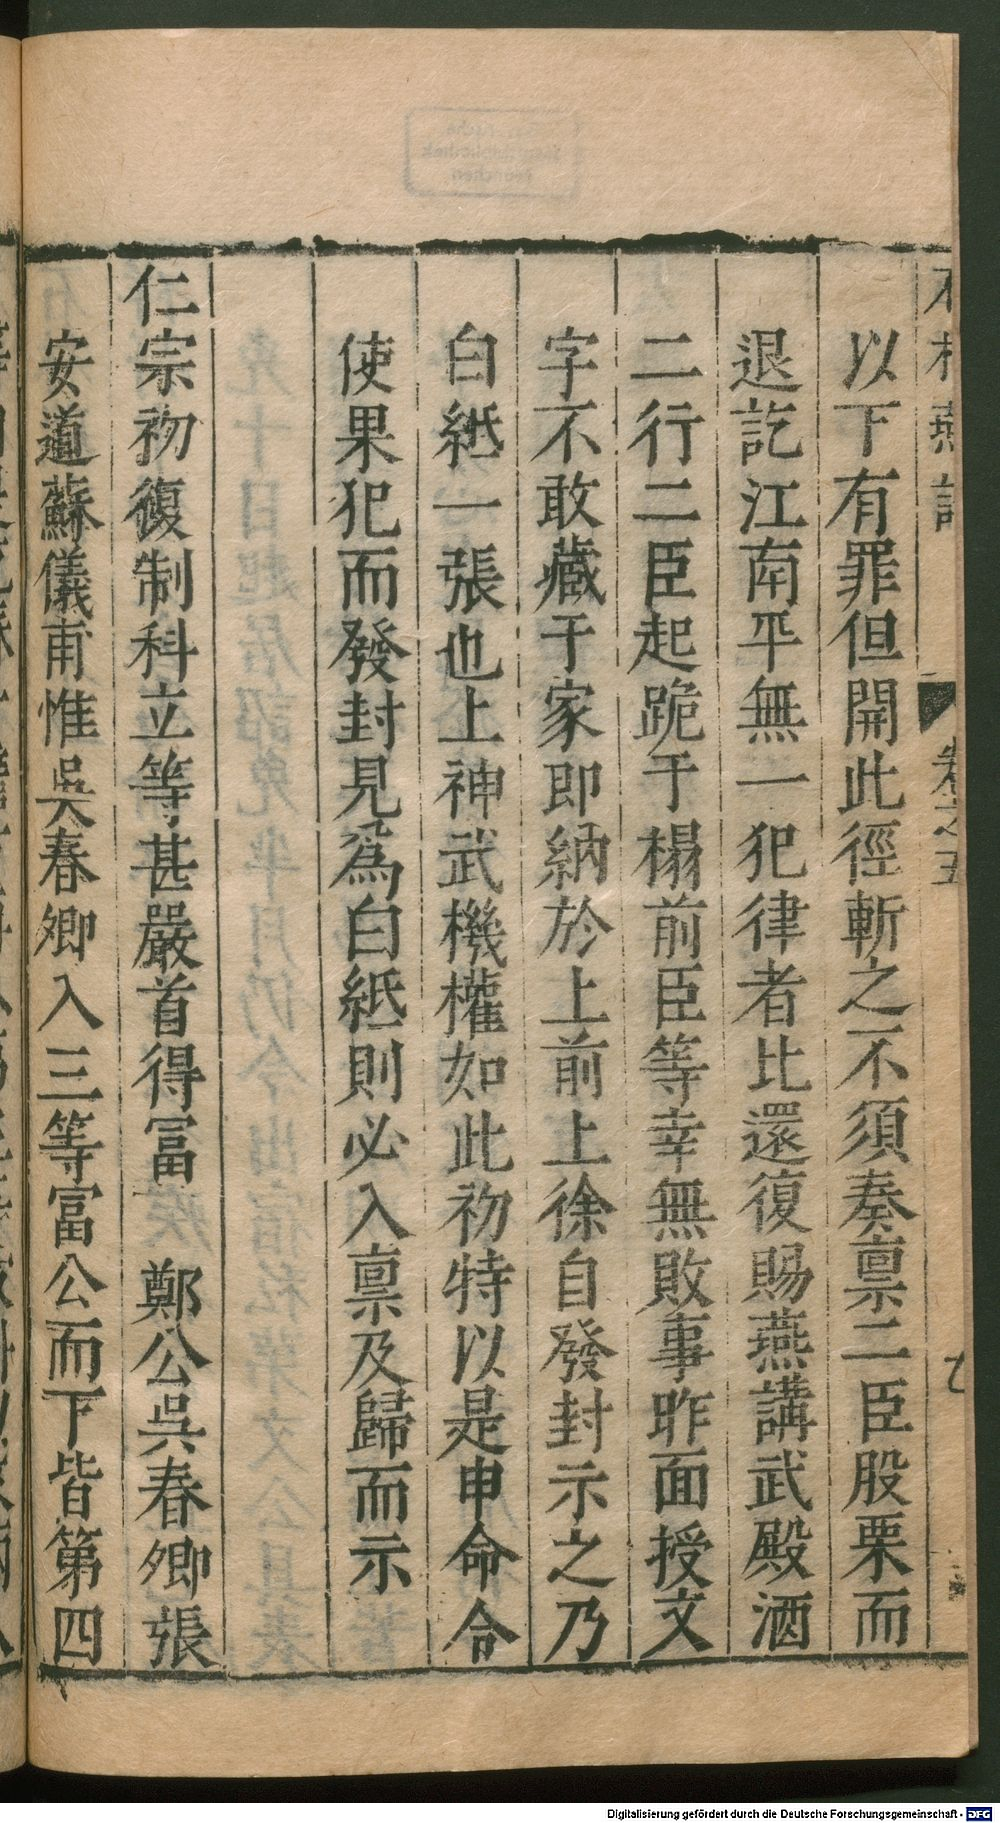 卷之五
以下有罪但開此徑斬之不須奏禀二臣股栗而
退訖江南平無一犯律者比還復賜燕講武殿酒
二行二臣起跪于榻前臣等幸無敗事昨面授文
字不敢藏于家即納於上前上徐自發封示之乃
白紙一張也上神武機權如此初特以是申命令
使果犯而發封見爲白紙則必入禀及歸而示
仁宗初復制科立等甚嚴首得富 鄭公吳春卿張
安道蘇儀甫惟吳春卿入三等富公而下皆第四
Digitalisierung gefördert durch die Deutsche Forschungsgemeinschaft - DFG